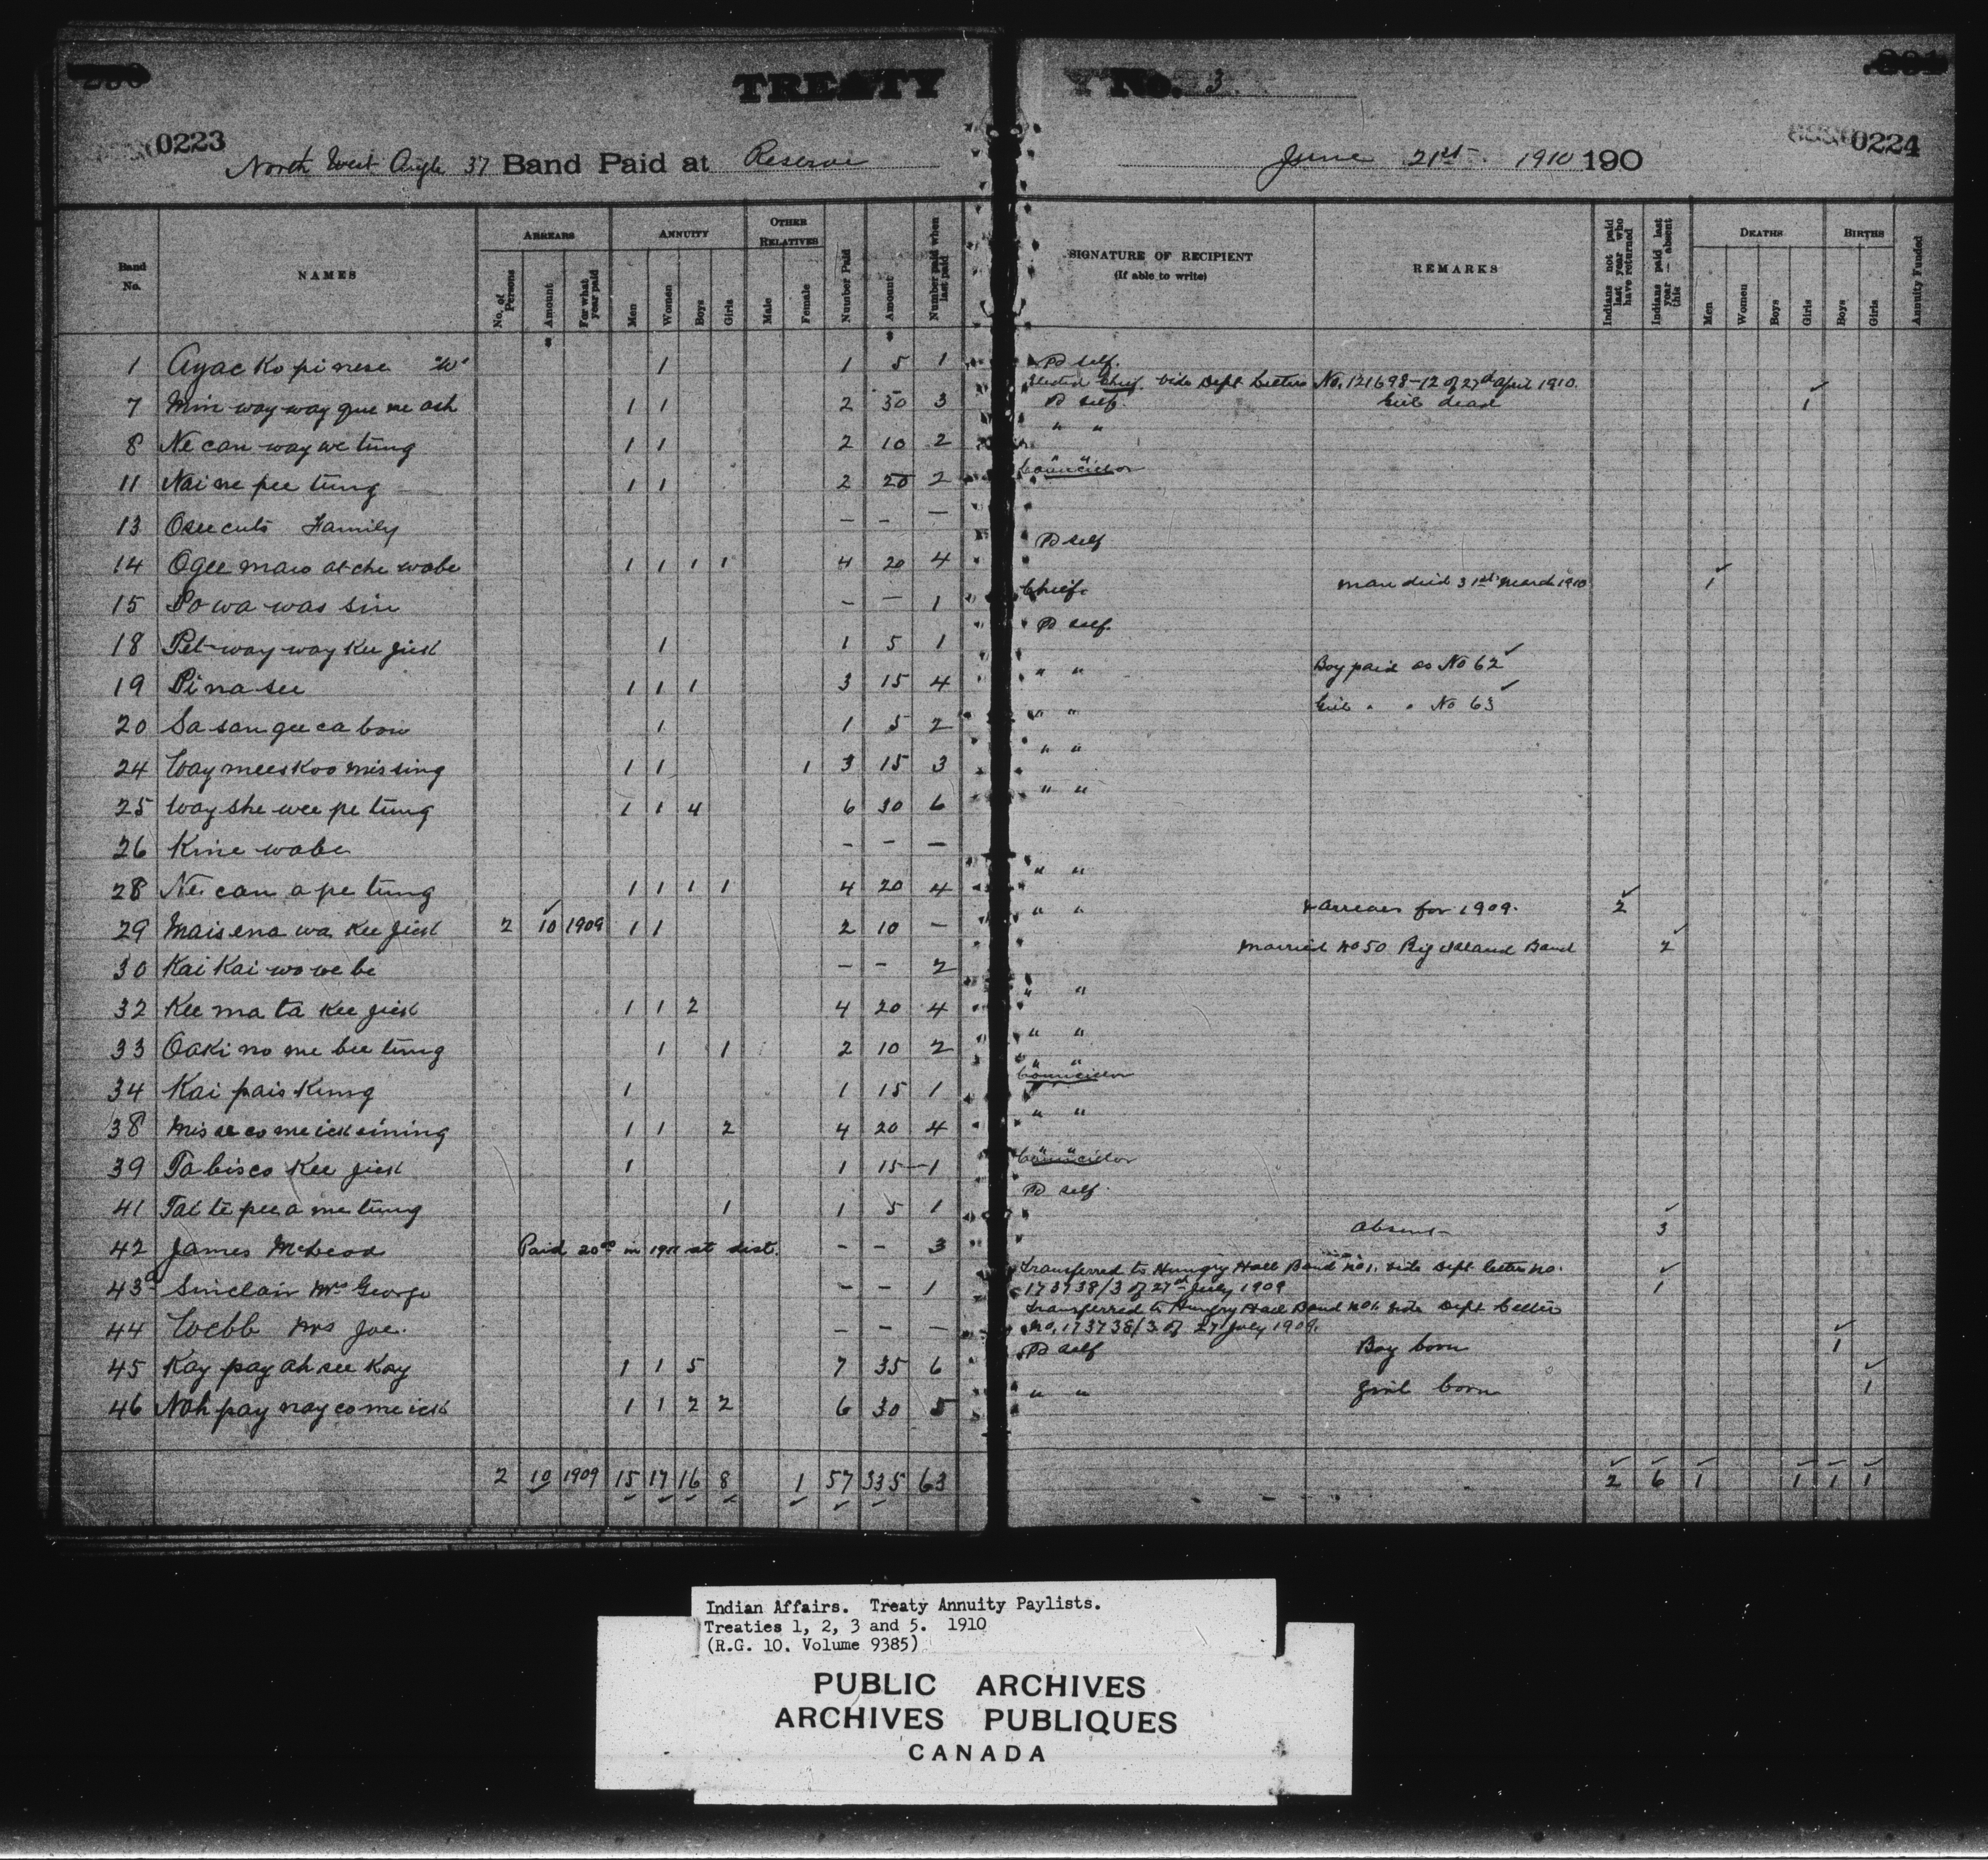 TREATY No. 3
0223
0224
North West Angle 37 Band Paid at Reserve June 21st 1910 190
Band No. NAMES ARREARS No. of Persons Amount For what year paid ANNUITY Men Women Boys Girls OTHER RELATIVES Male Female Number Paid Amount Number paid when last paid SIGNATURE OF RECIPIENT (If able to write) REMARKS Indians not paid last year who have returned Indians paid last year — absent this DEATHS Men Women Boys Girls BIRTHS Boys Girls Annuity Funded
$ $
1 Ayac Ko pi nese "W" 1 1 5 1 Pd self.
Elected Chief. Vide Dept Letter No. 121698-12 of 27th April 1910.
7 Min way way que me ash 1 1 2 30 3 Pd self. Girl dead 1
8 Ne can way we tung 1 1 2 10 2 " "
11 Nai ne pee tung 1 1 2 20 2 " " Councillor
13 Osee cuts Family – – –
14 Ogee maw at che wabe 1 1 1 1 4 20 4 Pd self
15 Powa was sin – – 1 Chief. Man died 31st March 1910 1
18 Pet-way way Kee jick 1 1 5 1 Pd self.
19 Pi na see 1 1 1 3 15 4 " " Boy paid as No 62
20 Sa san gee ca bow 1 1 5 2 " " Girl " " No 63
24 Way mees Koo mis sing 1 1 1 3 15 3 " "
25 Way she wee pe tung 1 1 4 6 30 6 " "
26 Kine wabe – – –
28 Ne can a pe tung 1 1 1 1 4 20 4 " "
29 Mais ena wa Kee jick 2 10 1909 1 1 2 10 – " " & arrears for 1909. 2
30 Kai Kai wo we be – – 2 Married No 50 Big Island Band 2
32 Kee ma ta Kee jick 1 1 2 4 20 4 " "
33 Oaki no me bee tung 1 1 2 10 2 " "
34 Kai pais Kung 1 1 15 1 " " Councillor
38 Mis se co me ick sining 1 1 2 4 20 4 " "
39 Ta bis co Kee jick 1 1 15 1 " " Councillor
41 Tat te pee a me tung 1 1 5 1 Pd self.
42 James McLeod Paid 20.00 in 1911 at dist. – – 3 Absent 3
43 Sinclair Mrs George – – 1 Transferred to Hungry Hall Band No 1. Vide Dept letter No. 1
173738/3 of 27th July 1909
44 Webb Mrs Joe. – – – Transferred to Hungry Hall Band No 1. Vide Dept letter
No. 173738/3 of 27 July 1909.
45 Kay pay ah see Kay 1 1 5 7 35 6 Pd self Boy born 1
46 Nah pay nay co me ick 1 1 2 2 6 30 5 " " Girl born 1
2 10 1909 15 17 16 8 1 57 335 63 2 6 1 1 1 1
Indian Affairs. Treaty Annuity Paylists.
Treaties 1, 2, 3 and 5. 1910
(R.G. 10. Volume 9385)
PUBLIC ARCHIVES
ARCHIVES PUBLIQUES
CANADA